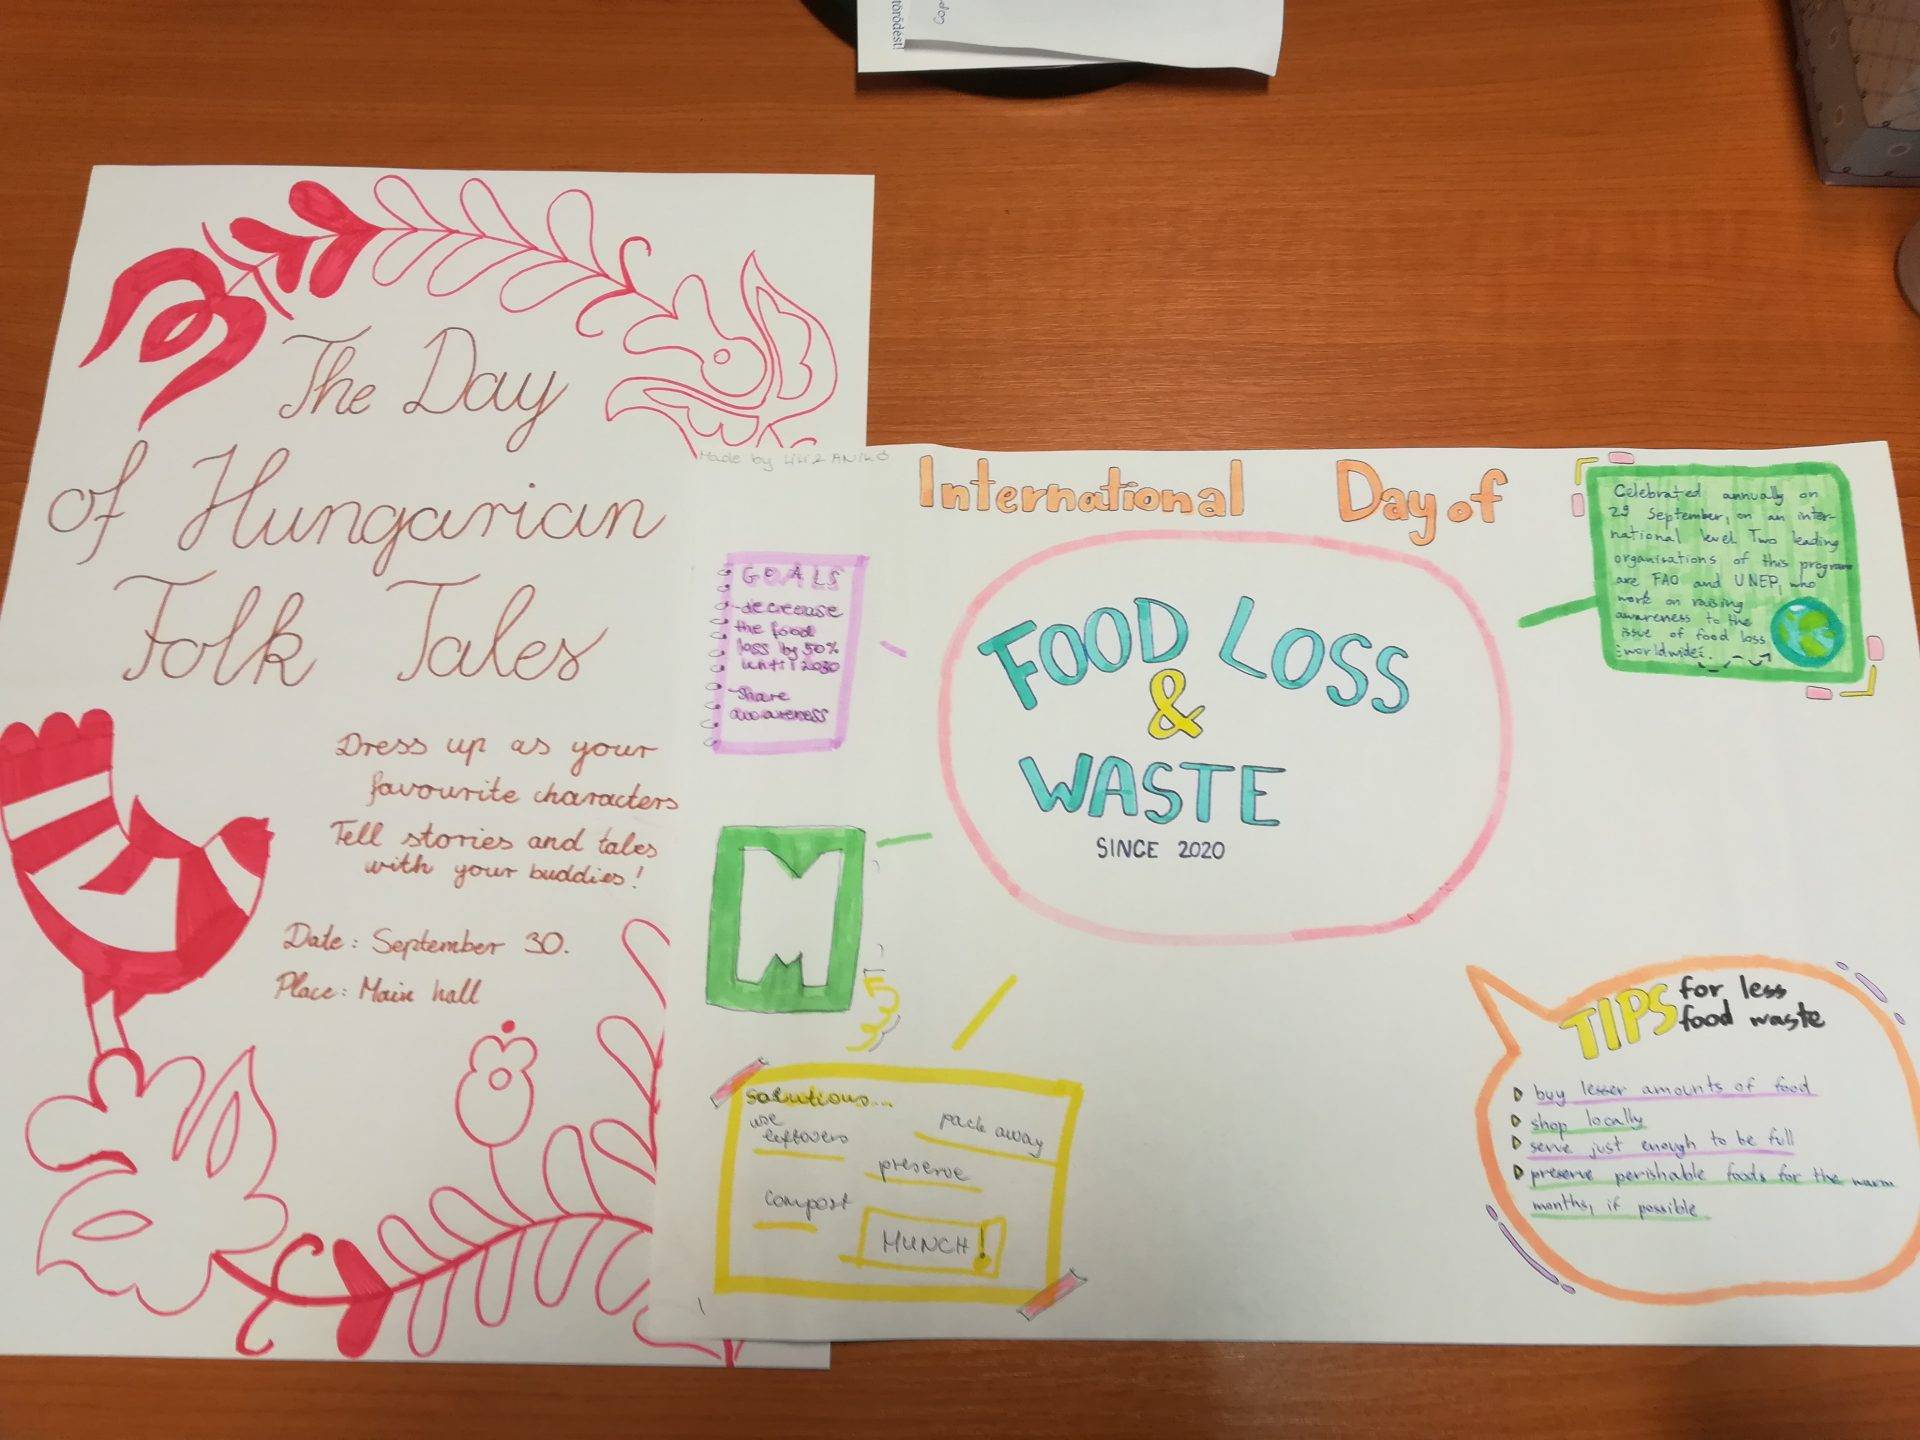 törődést!
The Day
of Hungarian
Folk Tales
Dress up as your
favourite characters
Tell stories and tales
with your buddies!
Date: September 30.
Place: Main hall
Made by LILI & ANIKÓ
International Day of
FOOD LOSS
&
WASTE
SINCE 2020
GOALS
-decrease
the food
loss by 50%
until 2030
-share
awareness
Celebrated annually on
29 September, on an inter-
national level. Two leading
organisations of this program
are FAO and UNEP, who
work on raising
awareness to the
issue of food loss
worldwide.
solutions...
use
leftovers
pack away
preserve
compost
MUNCH!
TIPS for less
food waste
buy lesser amounts of food
shop locally
serve just enough to be full
preserve perishable foods for the warm
months, if possible